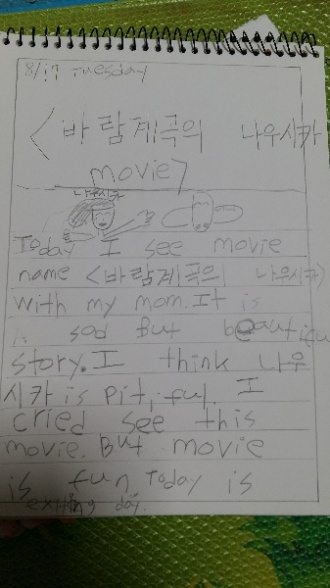 8/17 Tuesday
<바람계곡의 나우시카
movie>
나우시카
Today I see movie
name <바람계곡의 나우시카>
with my mom. It is
sad But beautiful
story. I think 나우
시카 is pitiful. I
cried see this
movie. But movie
is fun. Today is
exiting day.